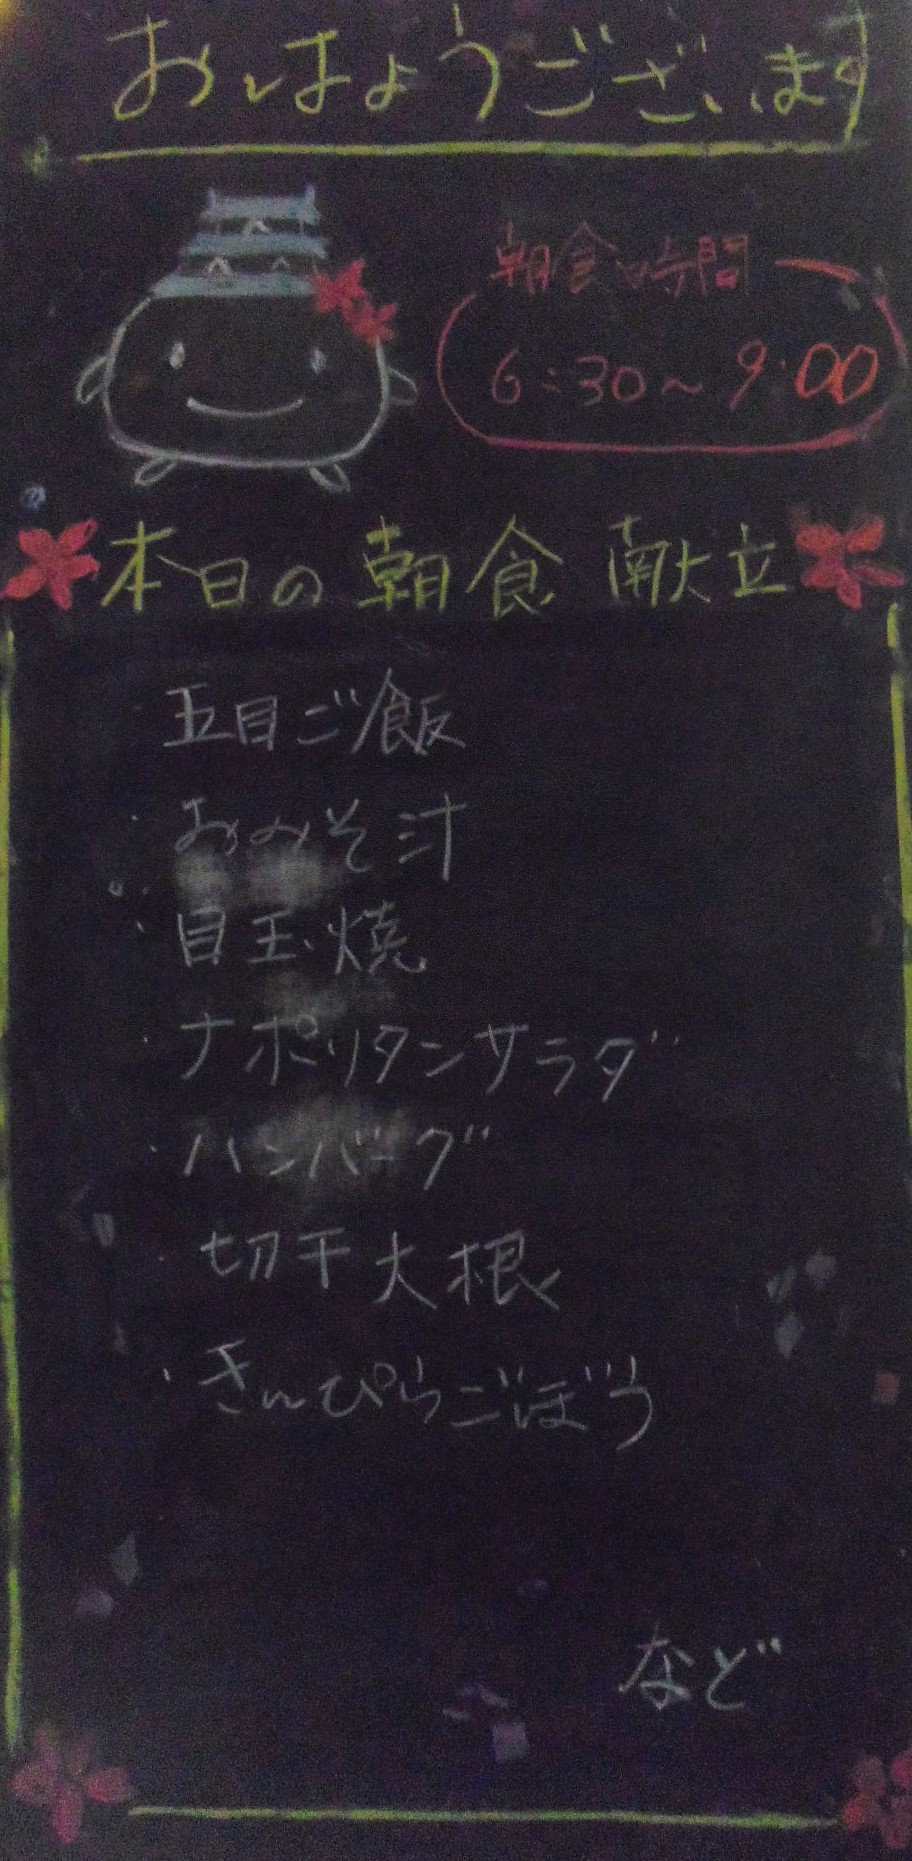 おはようございます
朝食時間
6:30～9:00
本日の朝食献立
五目ご飯
・おみそ汁
・目玉焼
・ナポリタンサラダ
・ハンバーグ
・切干大根
・きんぴらごぼう
など